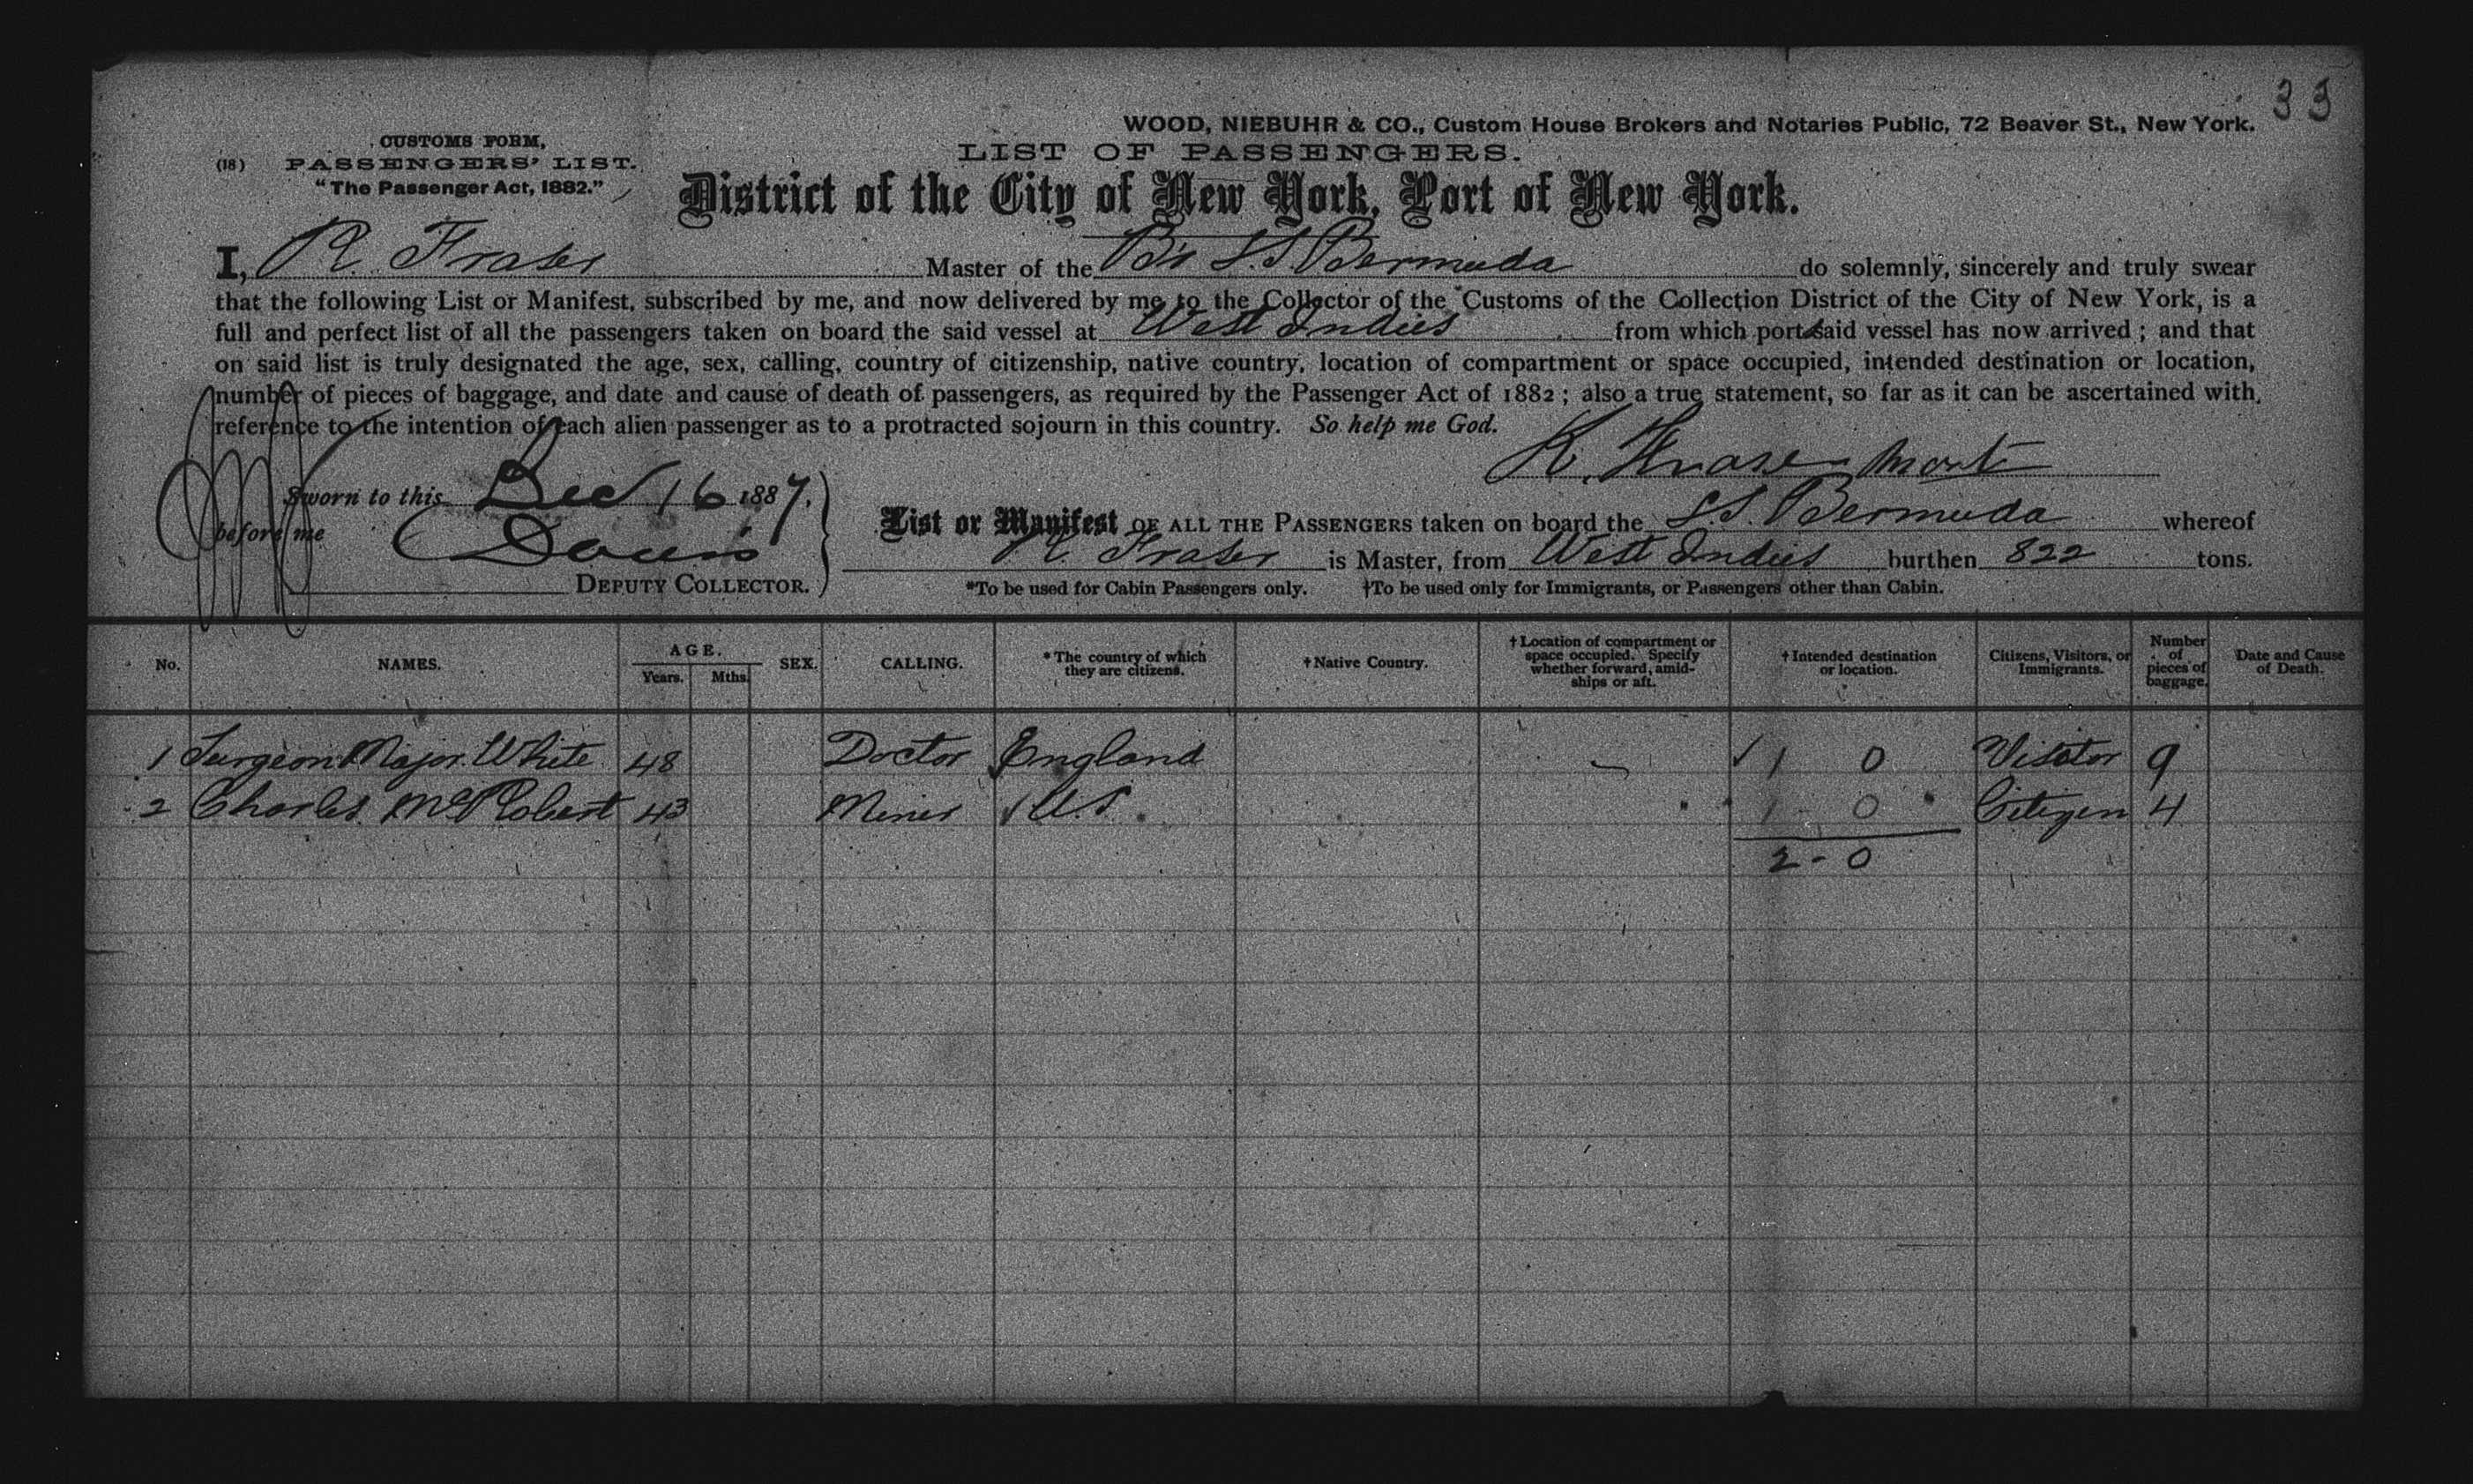 33
WOOD, NIEBUHR & CO., Custom House Brokers and Notaries Public, 72 Beaver St., New York.
CUSTOMS FORM,
(18) PASSENGERS' LIST.
"The Passenger Act, 1882."
LIST OF PASSENGERS.
District of the City of New York, Port of New York.
I, R. Fraser Master of the Br S.S. Bermuda do solemnly, sincerely and truly swear
that the following List or Manifest, subscribed by me, and now delivered by me to the Collector of the Customs of the Collection District of the City of New York, is a
full and perfect list of all the passengers taken on board the said vessel at West Indies from which port said vessel has now arrived; and that
on said list is truly designated the age, sex, calling, country of citizenship, native country, location of compartment or space occupied, intended destination or location,
number of pieces of baggage, and date and cause of death of passengers, as required by the Passenger Act of 1882; also a true statement, so far as it can be ascertained with
reference to the intention of each alien passenger as to a protracted sojourn in this country. So help me God.
R. Fraser
Sworn to this Dec 16 1887.
before me Davis
DEPUTY COLLECTOR.
List or Manifest OF ALL THE PASSENGERS taken on board the S.S. Bermuda whereof
R. Fraser is Master, from West Indies burthen 822 tons.
*To be used for Cabin Passengers only. †To be used only for Immigrants, or Passengers other than Cabin.
No. NAMES. AGE. Years. Mths. SEX. CALLING. *The country of which they are citizens. †Native Country. †Location of compartment or space occupied. Specify whether forward, amid-ships or aft. †Intended destination or location. Citizens, Visitors, or Immigrants. Number of pieces of baggage. Date and Cause of Death.
1 Surgeon Major White 48 Doctor England 1 0 Visitor 9
2 Charles McRobert 43 Miner U.S. 1 0 Citizen 4
2 - 0